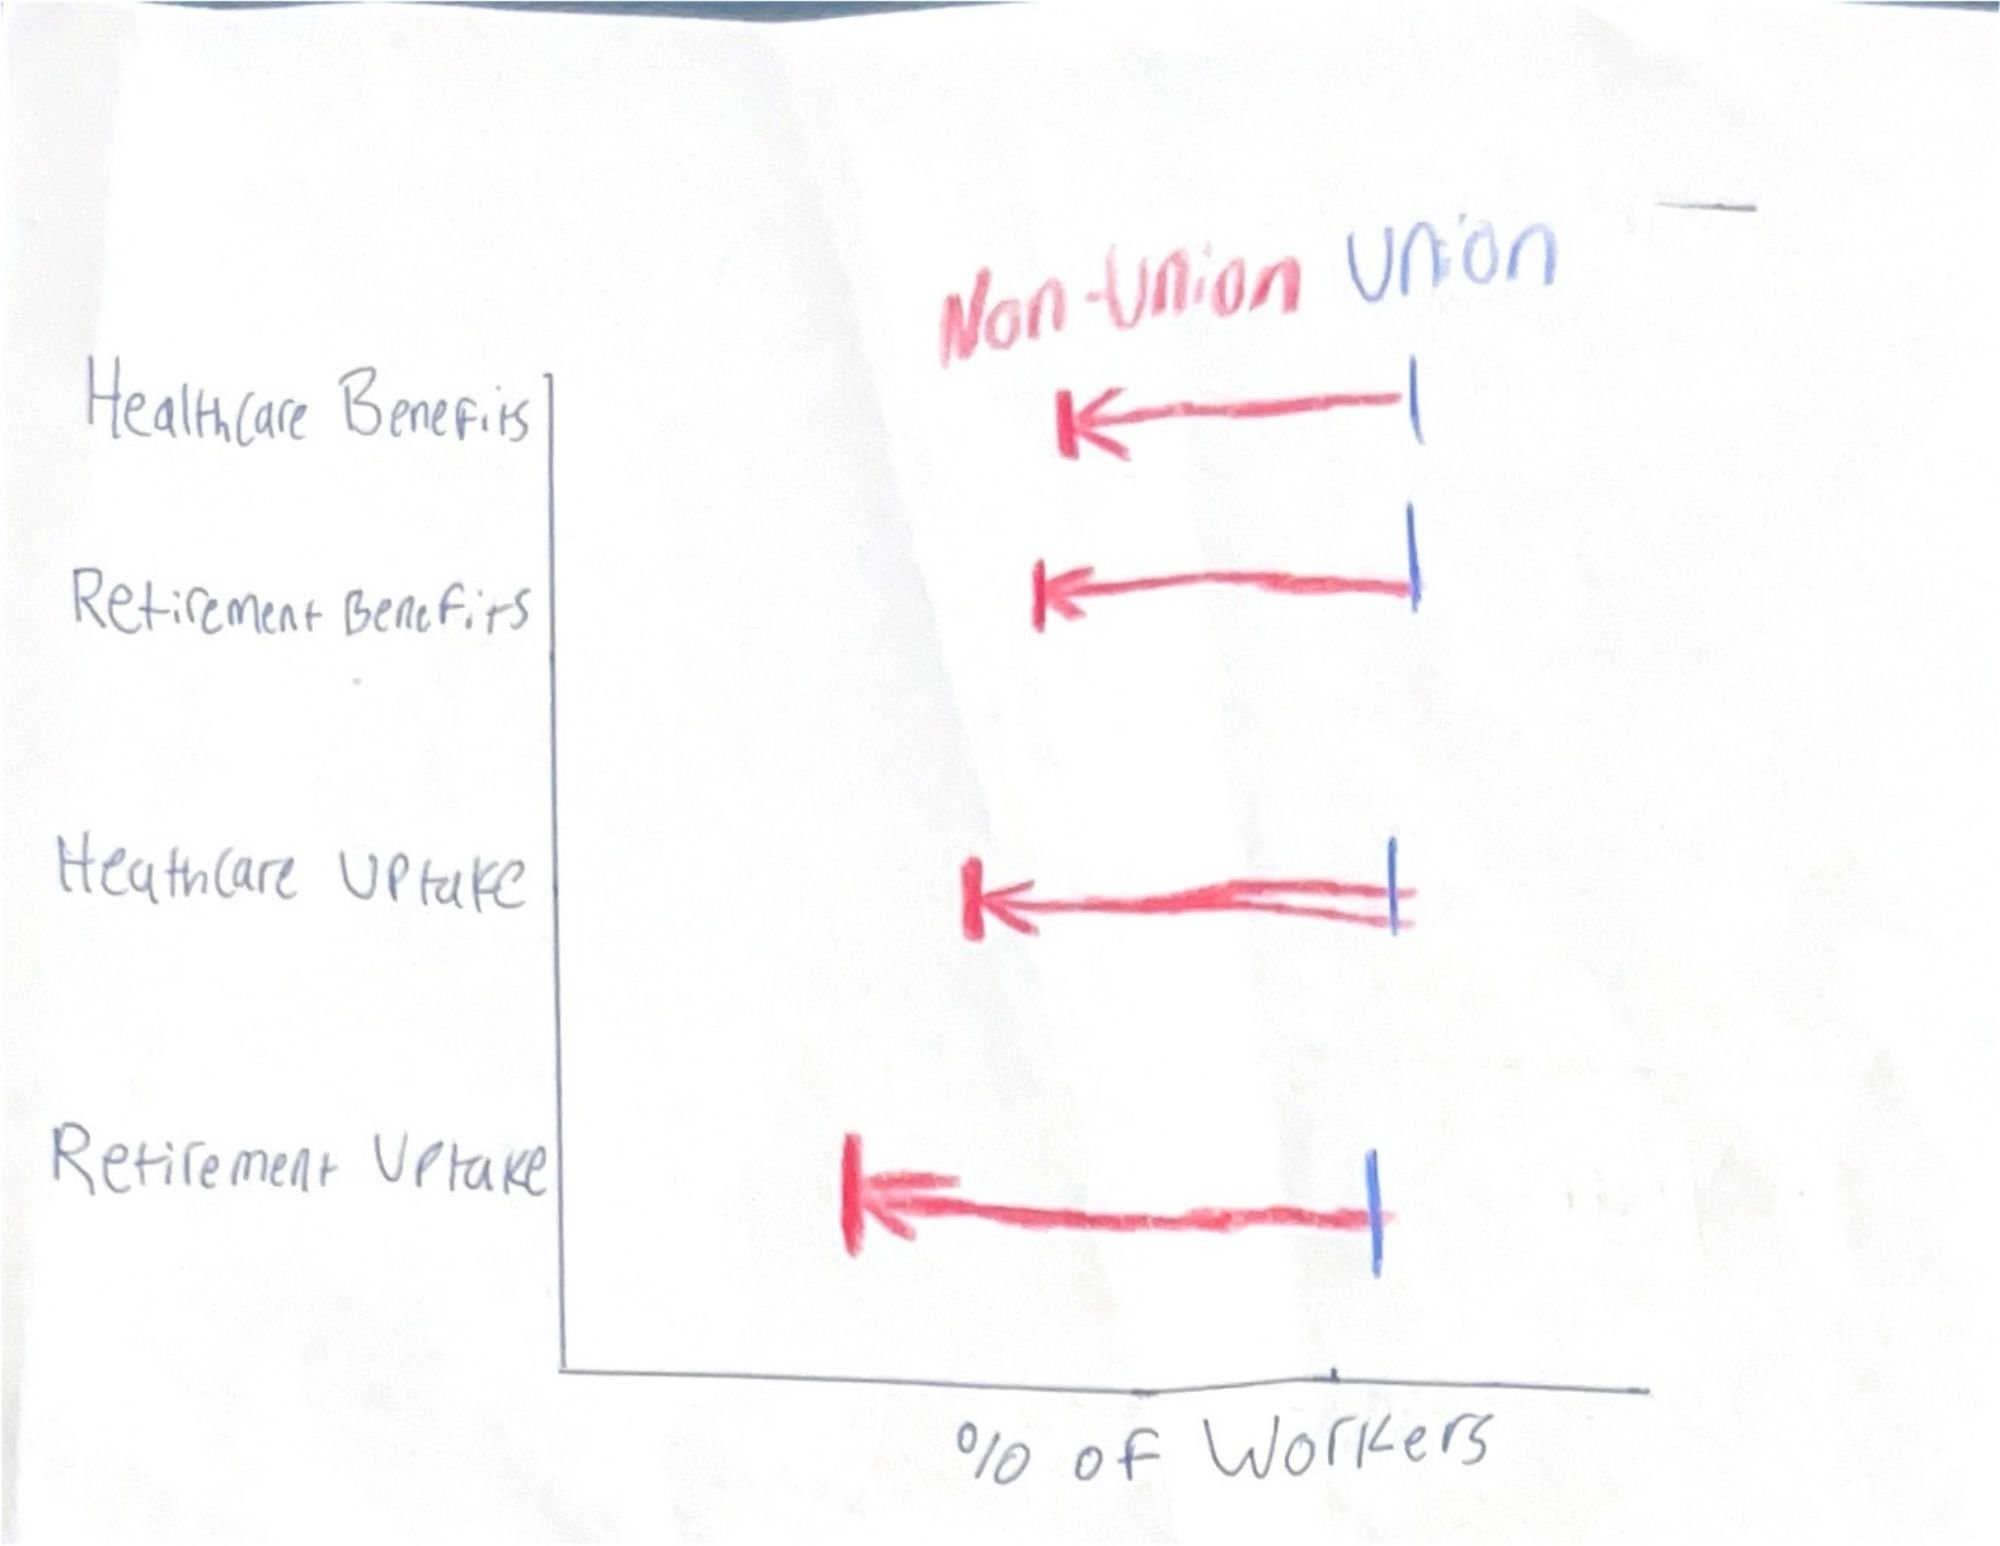 Non-Union Union
Healthcare Benefits
Retirement Benefits
Heathcare Uptake
Retirement Uptake
% of Workers